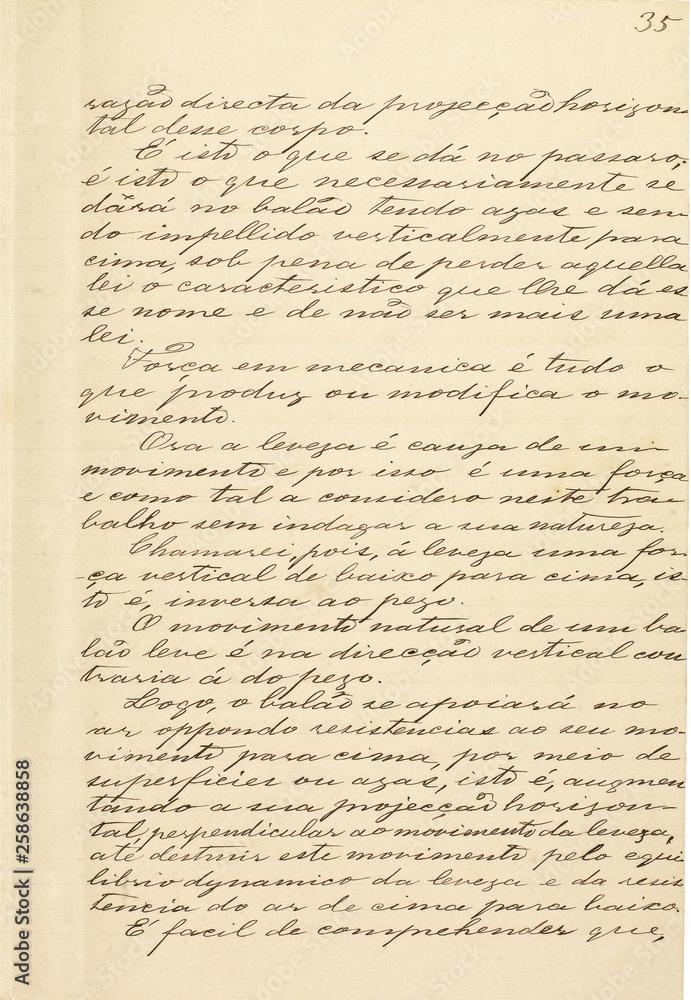 35
razão directa da projecção horizon-
tal desse corpo.
É isto o que se dá no passaro;
é isto o que necessariamente se
dará no balão tendo azas e sen-
do impellido verticalmente para
cima, sob pena de perder aquella
lei o caracteristico que lhe dá es-
se nome e de não ser mais uma
lei.
Força em mecanica é tudo o
que produz ou modifica o mo-
vimento.
Ora a leveza é cauza de um
movimento e por isso é uma força
e como tal a considero neste tra-
balho sem indagar a sua natureza.
Chamarei, pois, á leveza uma for-
-ça vertical de baixo para cima, is-
to é, inversa ao pezo.
O movimento natural de um ba-
lão leve é na direcção vertical con
traria á do pezo.
Logo, o balão se apoiará no
ar oppondo resistencias ao seu mo-
vimento para cima, por meio de
superficies ou azas, isto é, augmen
tando a sua projecção horizon-
tal, perpendicular ao movimento da leveza,
até destruir este movimento pelo equi
librio dynamico da leveza e da resis
tencia do ar de cima para baixo.
É facil de comprehender que,
Adobe Stock | #258638858